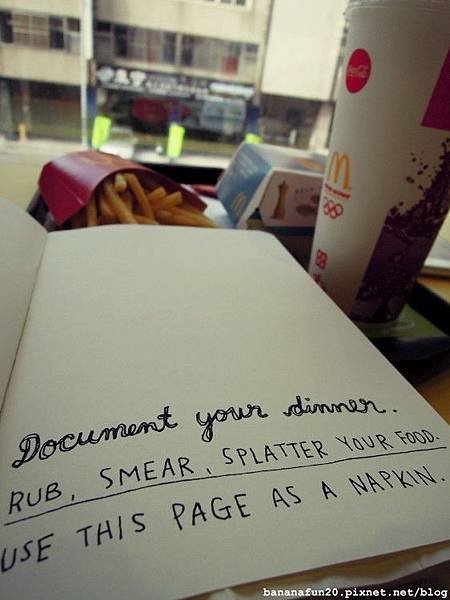 Coca-Cola
Document your dinner.
RUB, SMEAR, SPLATTER YOUR FOOD.
USE THIS PAGE AS A NAPKIN.
bananafun20.pixnet.net/blog